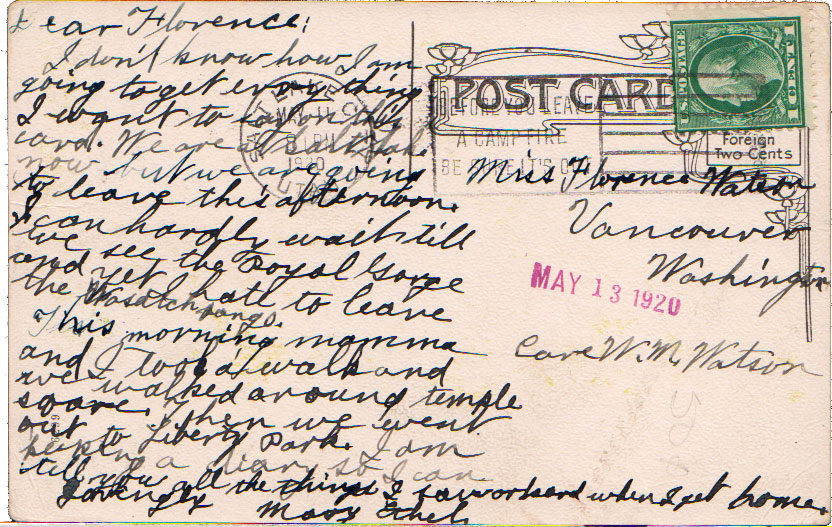 Dear Florence:
I don't know how I am
going to get every thing
I want to say on this
card. We are at Salt Lake
now but we are going
to leave this afternoon.
I can hardly wait till
we see the Royal Gorge
and yet I hate to leave
the Wasatch range.
This morning mamma
and I took a walk and
we walked around temple
square. Then we went
out to Liberty Park.
keeping a diary so I can
tell you all the things I saw when I get home.
Lovingly
Mary Ethel
SALT LAKE CITY
MAY 11
8 PM
1920
UTAH
BEFORE YOU LEAVE
A CAMP FIRE
BE SURE IT'S OUT
POST CARD
U.S. POSTAGE
Foreign
Two Cents
Miss Florence Watson
Vancouver
Washington
MAY 13 1920
Care W. M. Watson